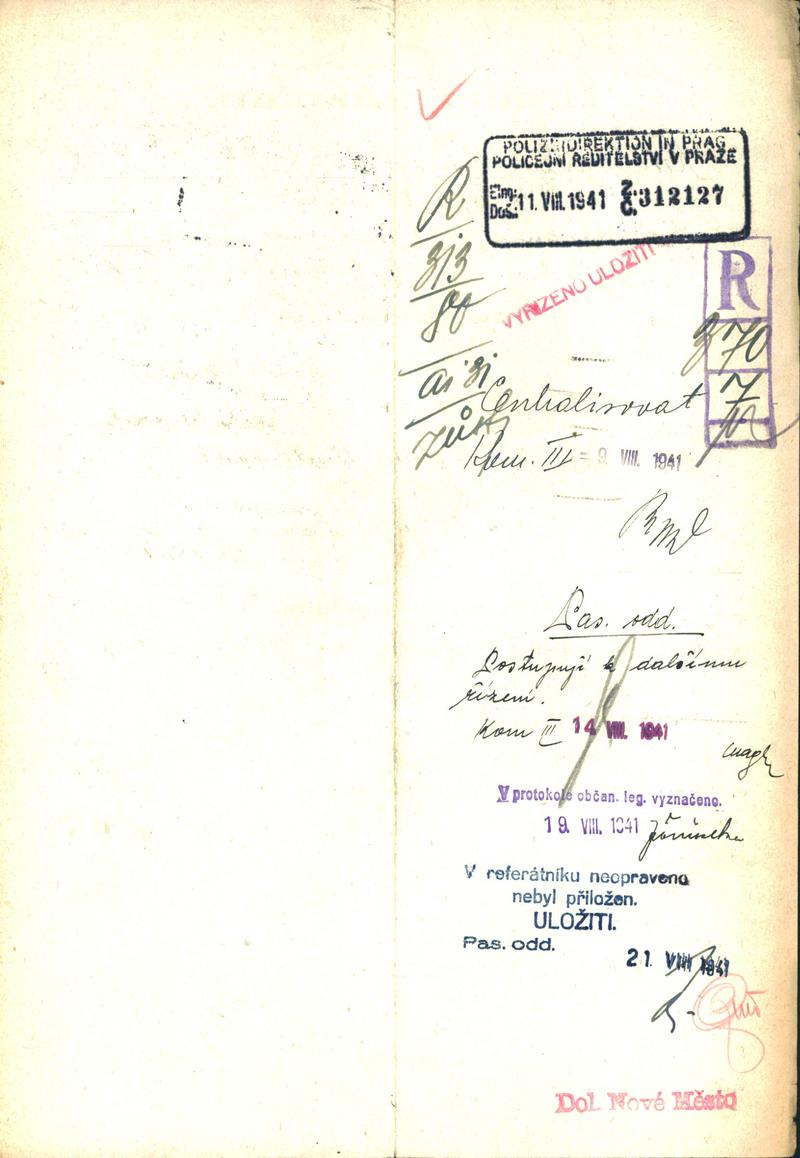 POLIZEIDIREKTION IN PRAG
POLICEJNÍ ŘEDITELSTVÍ V PRAZE
Eing.: Doš.: 11. VIII. 1941 Z. Č. 312127
R
313
80
VYŘÍZENO ULOŽITI
R
370
7
Centralisovat
Kom. III - 9. VIII. 1941
Pas. odd.
Postupuji k dalšímu
řízení.
Kom III 14 VIII. 1941
V protokole občan. leg. vyznačeno.
19. VIII. 1941
V referátníku neopraveno
nebyl přiložen.
ULOŽITI.
Pas. odd.
21. VIII 1941
Dol. Nové Město